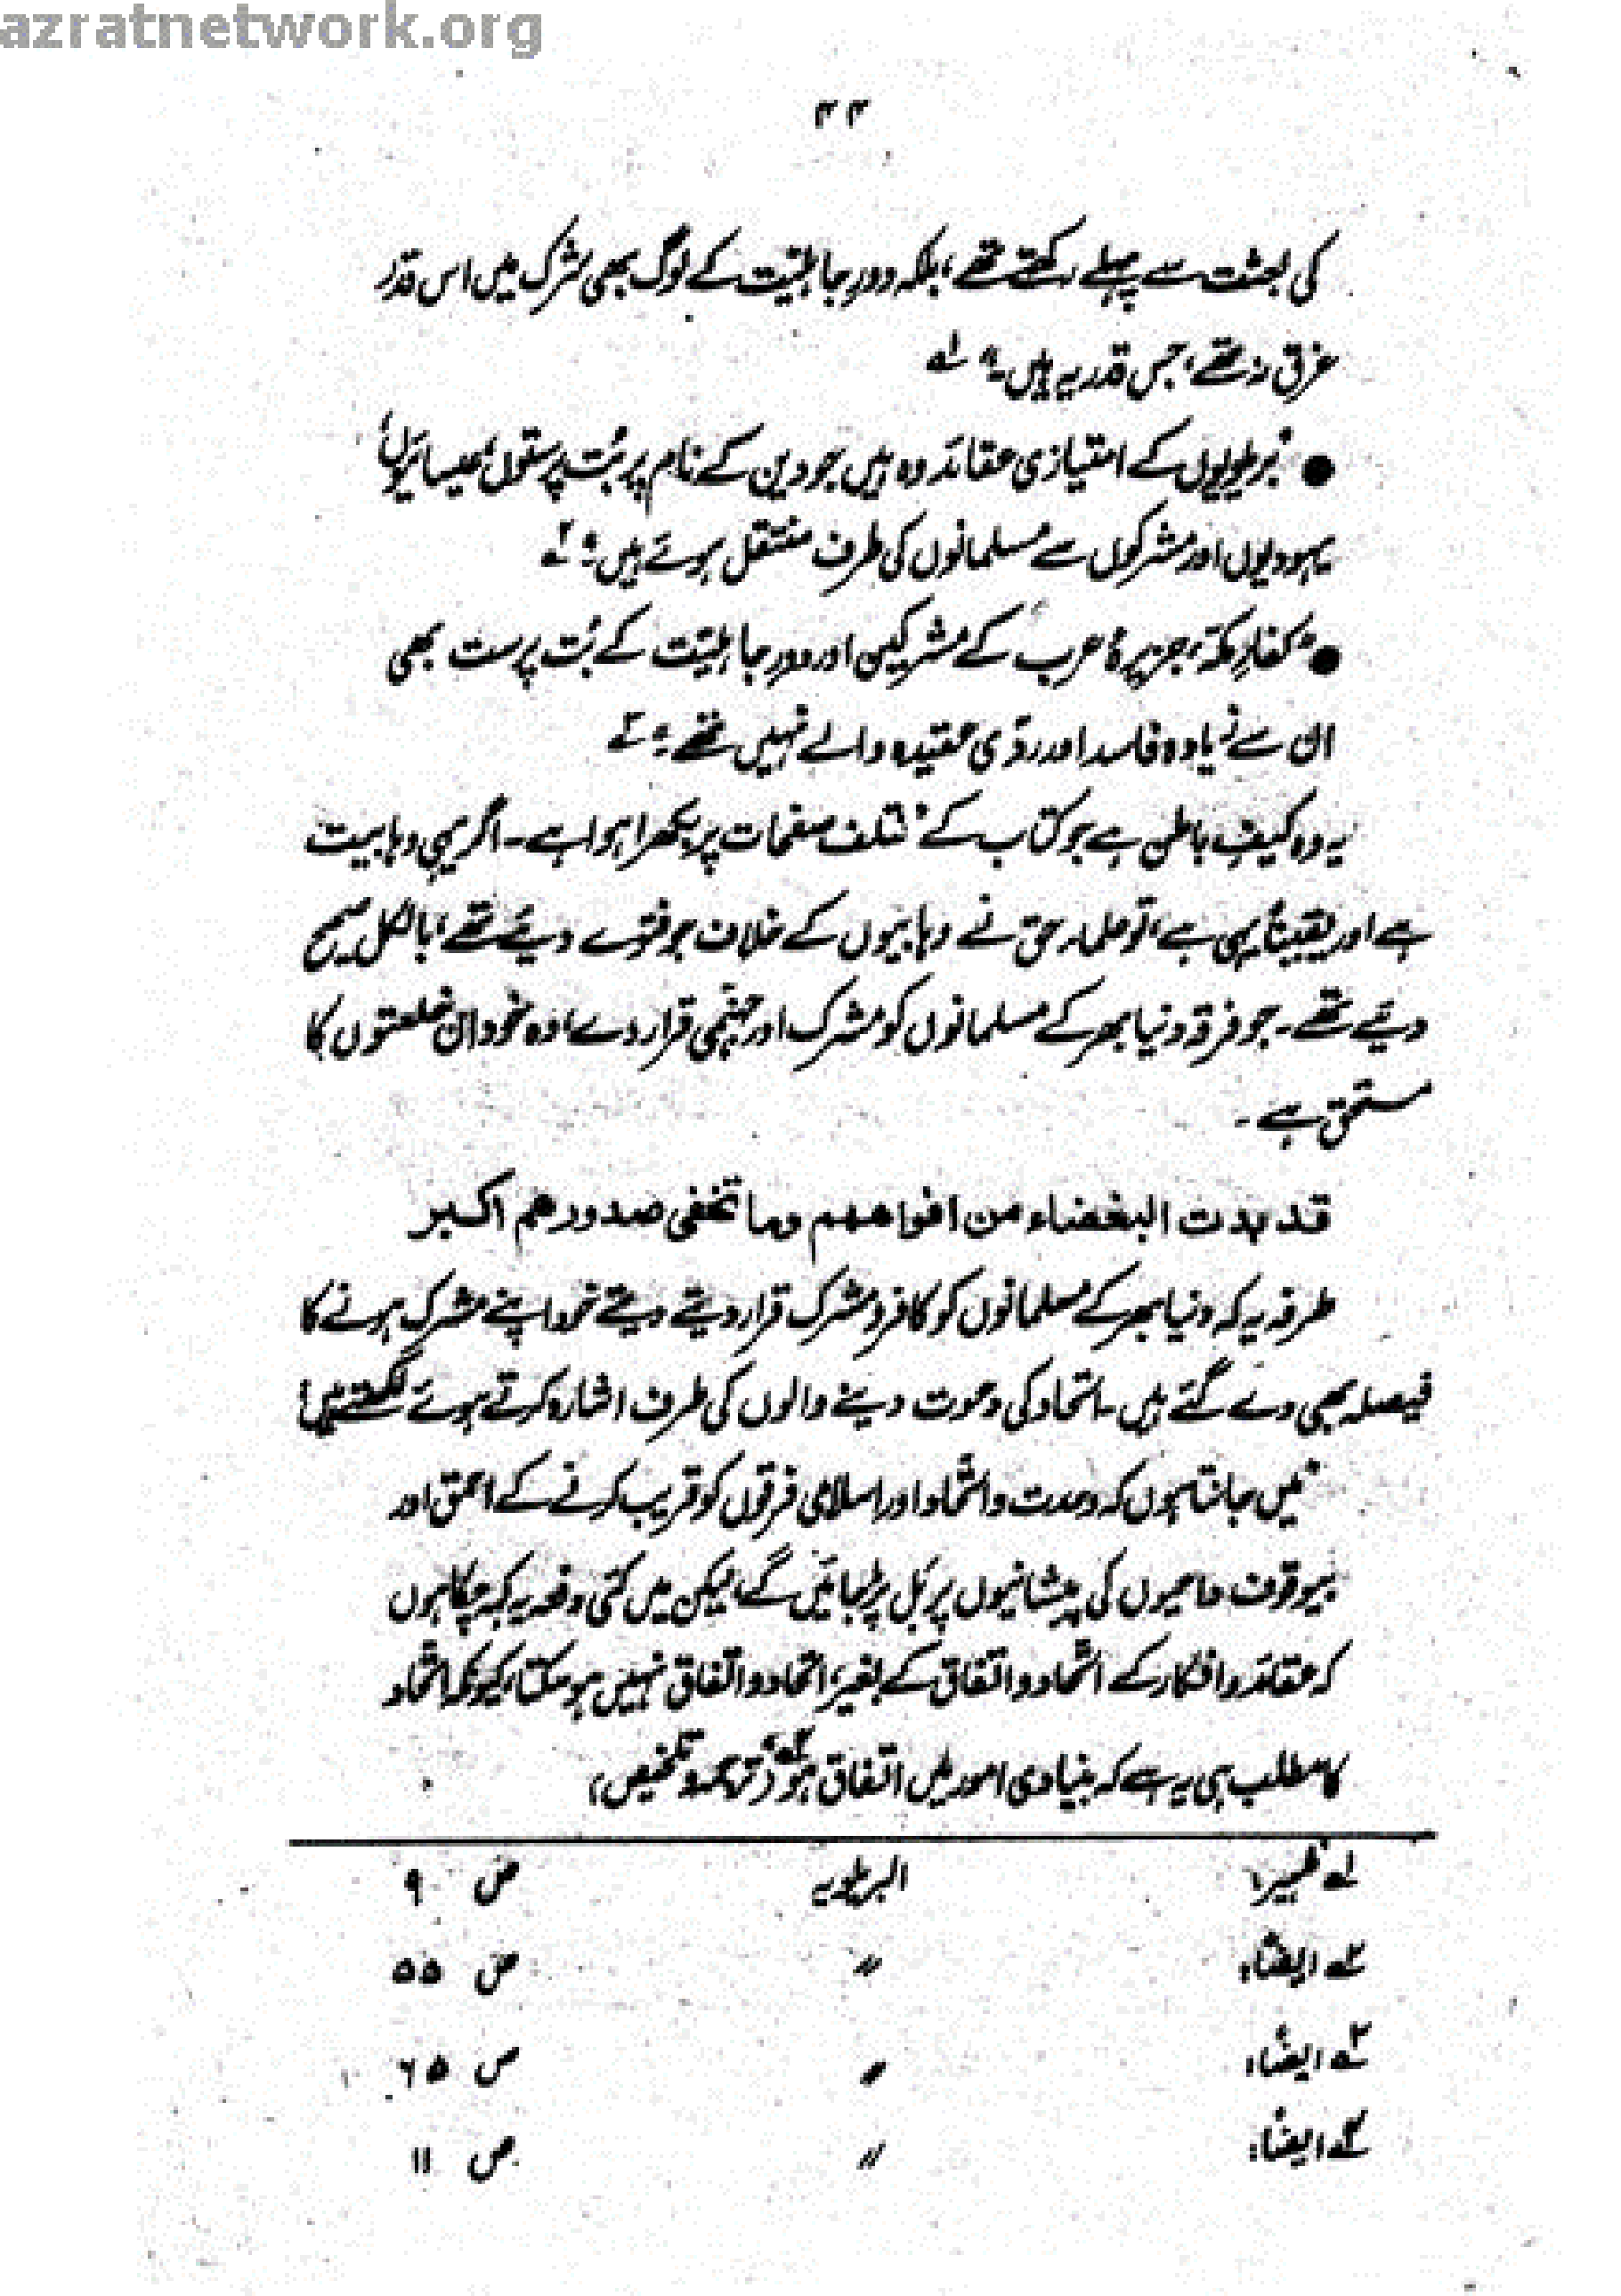 azratnetwork.org
۴۴
کی بعثت سے پہلے رکھتے تھے، بلکہ دورِ جاہلیّت کے لوگ بھی شرک میں اس قدر
غرق نہ تھے، جس قدر یہ ہیں۔" ۱؎
● "بریلویوں کے امتیازی عقائد وہ ہیں جو دین کے نام پر بُت پرستوں، عیسائیوں،
یہودیوں اور مشرکوں سے مسلمانوں کی طرف منتقل ہوئے ہیں۔" ۲؎
● "کفارِ مکہ، جزیرۂ عرب کے مشرکین اور دورِ جاہلیّت کے بُت پرست بھی
ان سے زیادہ فاسد اور ردّی عقیدہ والے نہیں تھے۔" ۳؎
یہ وہ کیفِ باطن ہے جو کتاب کے مختلف صفحات پر بکھرا ہوا ہے۔ اگر یہی وہابیت
ہے اور یقیناً یہی ہے، تو علماءِ حق نے وہابیوں کے خلاف جو فتوے دیئے تھے، بالکل صحیح
دیئے تھے۔ جو فرقہ دنیا بھر کے مسلمانوں کو مشرک اور جہنّمی قرار دے، وہ خود ان خلعتوں کا
مستحق ہے۔
قد بدت البغضاء من افواههم وما تخفى صدورهم اکبر
طرفہ یہ کہ دنیا بھر کے مسلمانوں کو کافر و مشرک قرار دیتے دیتے خود اپنے مشرک ہونے کا
فیصلہ بھی دے گئے ہیں۔ اتحاد کی دعوت دینے والوں کی طرف اشارہ کرتے ہوئے لکھتے ہیں:
"میں جانتا ہوں کہ وحدت و اتّحاد اور اسلامی فرقوں کو قریب کرنے کے احمق اور
بیوقوف داعیوں کی پیشانیوں پر بَل پڑ جائیں گے، لیکن میں کئی دفعہ یہ کہہ چکا ہوں
کہ عقائد و افکار کے اتّحاد و اتفاق کے بغیر، اتحاد و اتّفاق نہیں ہو سکتا، کیونکہ اتّحاد
کا مطلب ہی یہ ہے کہ بنیادی امور میں اتّفاق ہو" ۴؎ (ترجمہ و تلخیص)
۱؎ ظہیر: البریلویہ ص ۹
۲؎ ایضاً: " ص ۵۵
۳؎ ایضاً: " ص ۶۵
۴؎ ایضاً: " ص ۱۱